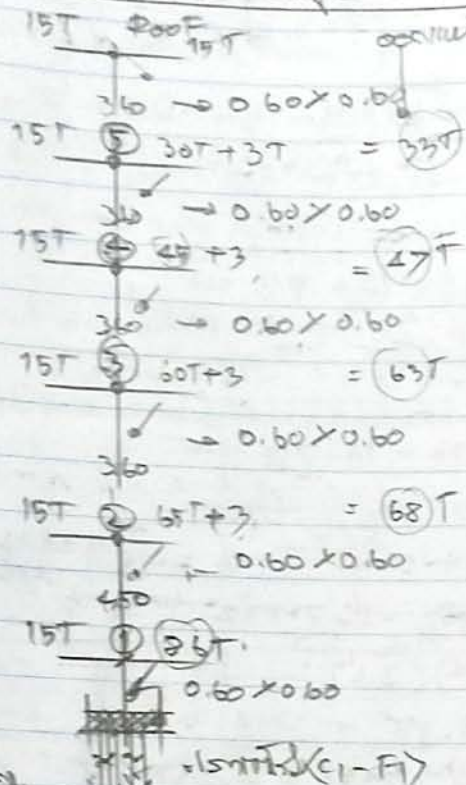 15T ROOF 15T
360 → 0.60 × 0.60
15T ⑤ 30T + 3T = 33T
360 → 0.60 × 0.60
15T ④ 45 + 3 = 47T
360 → 0.60 × 0.60
15T ③ 60T + 3 = 63T
→ 0.60 × 0.60
360
15T ② 65T + 3 = 68T
0.60 × 0.60
450
15T ① 86T
0.60 × 0.60
(C1 - F1)